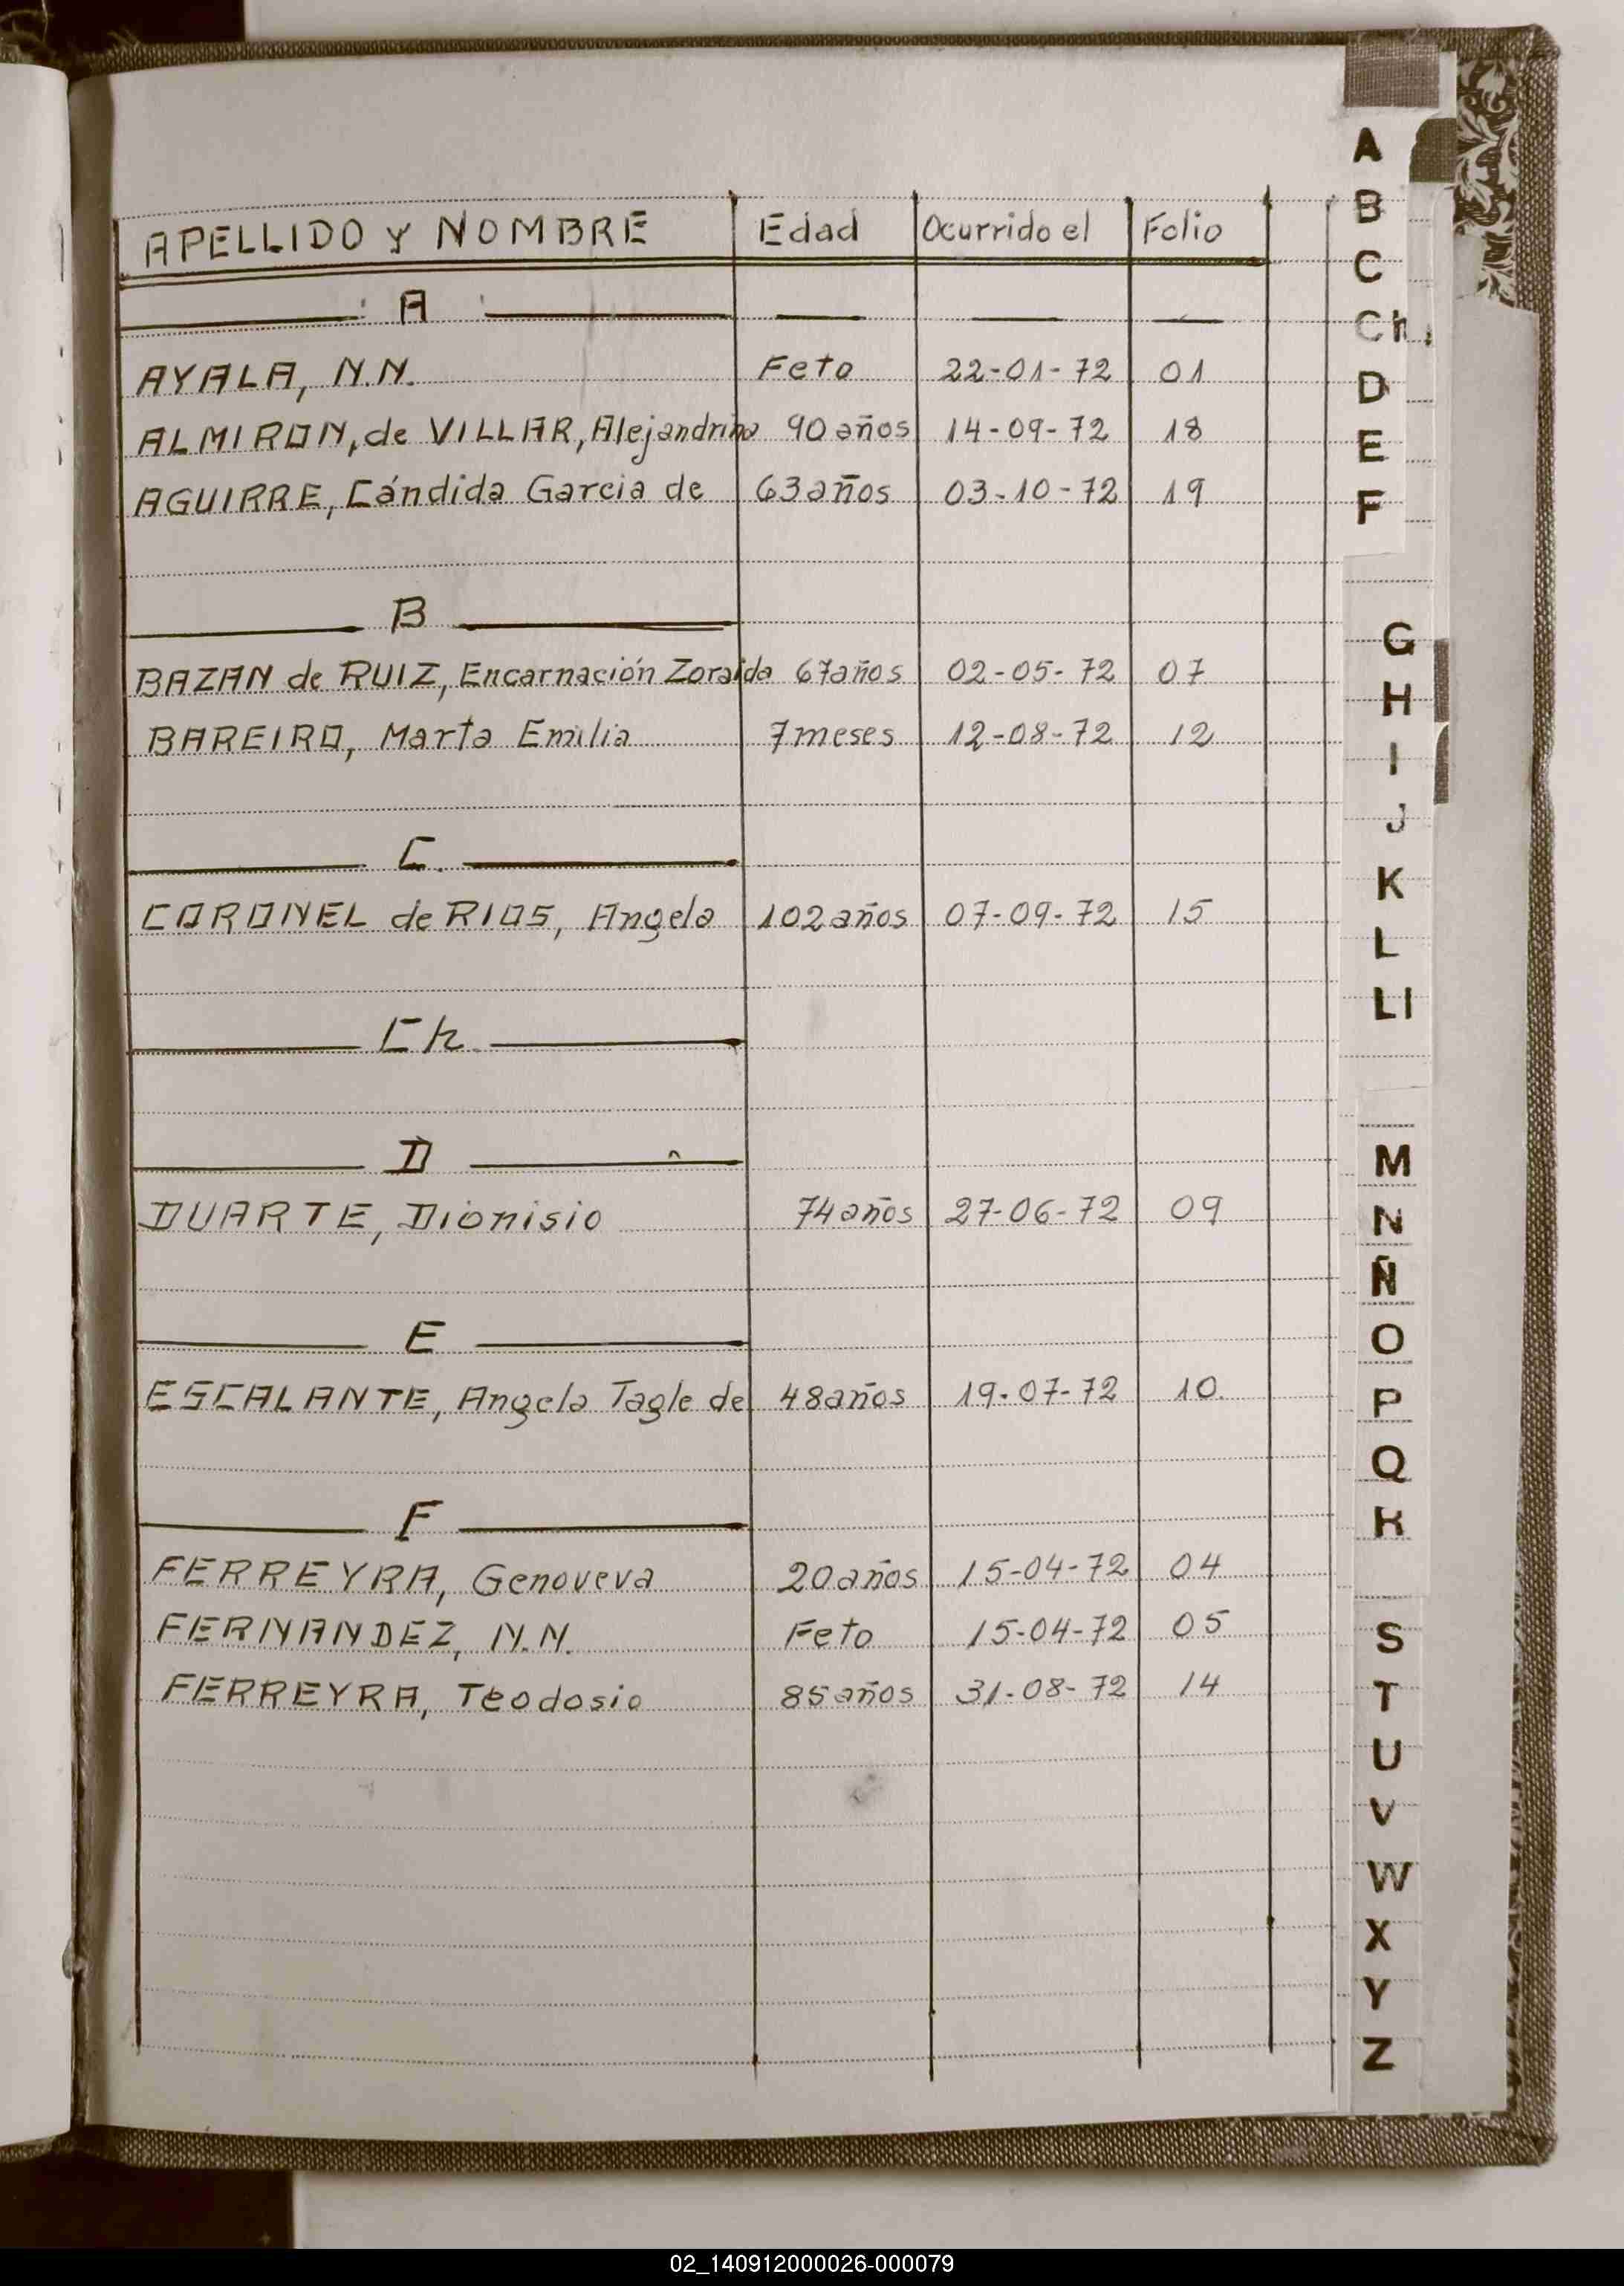 APELLIDO y NOMBRE Edad Ocurrido el Folio
A
AYALA, N.N. Feto 22-01-72 01
ALMIRON, de VILLAR, Alejandrina 90 años 14-09-72 18
AGUIRRE, Cándida Garcia de 63 años 03-10-72 19
B
BAZAN de RUIZ, Encarnación Zoraida 67 años 02-05-72 07
BAREIRO, Marta Emilia 7 meses 12-08-72 12
C.
CORONEL de RIOS, Angela 102 años 07-09-72 15
Ch.
D
DUARTE, Dionisio 74 años 27-06-72 09
E
ESCALANTE, Angela Tagle de 48 años 19-07-72 10.
F
FERREYRA, Genoveva 20 años 15-04-72 04
FERNANDEZ, N.N. Feto 15-04-72 05
FERREYRA, Teodosio 85 años 31-08-72 14
A
B
C
Ch
D
E
F
G
H
I
J
K
L
Ll
M
N
Ñ
O
P
Q
R
S
T
U
V
W
X
Y
Z
02_140912000026-000079